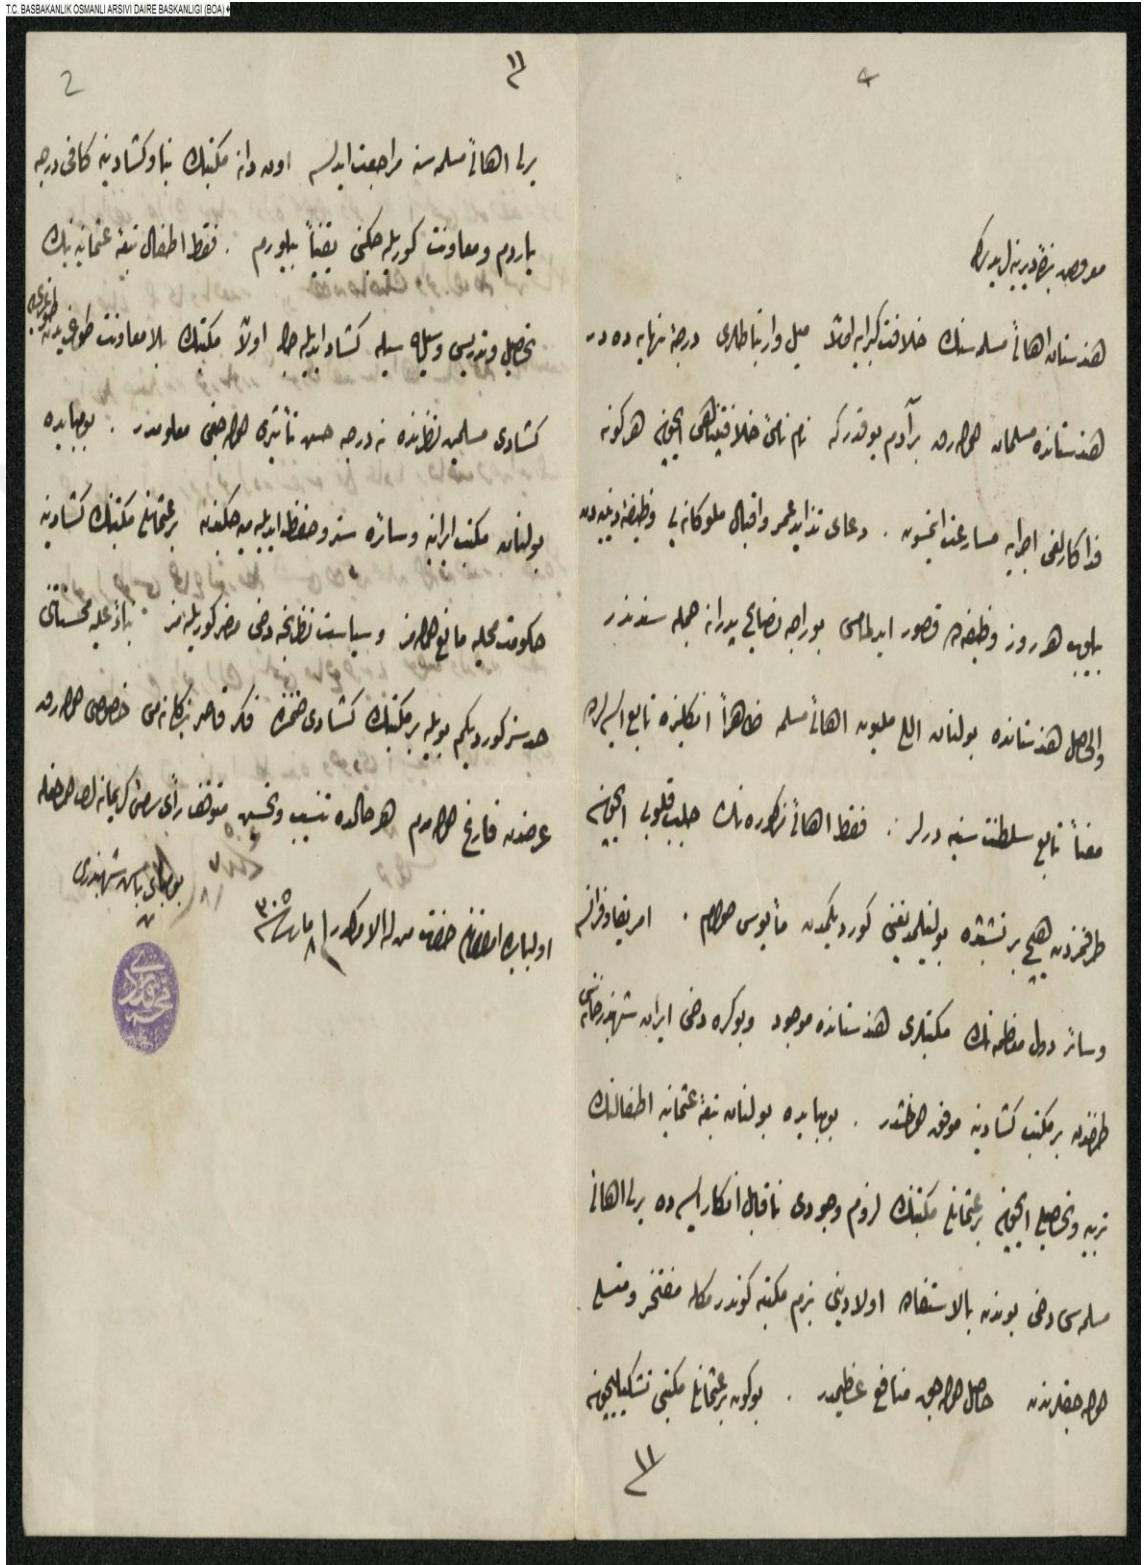 T.C. BASBAKANLIK OSMANLI ARSIVI DAIRE BASKANLIGI (BOA)
معروض بندهٔ ديرينه‌لريدركه
هندستان اهالئ مسلمه‌سنك خلافت كبرايه اولان ميل وارتباطلرى درجهٔ نهايه ده در
هندستانده مسلمان اوله‌رق بر آدم يوقدركه نام نامئ خلافتپناهى ايچون هركونه
فداكارلغى اجرايه مسارعت ايتمسون . دعاى تزايد عمر واقبال ملوكانه‌يى وظيفهٔ دينيه‌دن
بيلوب هر روز وظيفه‌ده قصور ايدلمامسى نصايح پدرانه جمله‌سندندر
والحاصل هندستانده بولنان اللى مليون اهالئ مسلمه ظاهراً انكليزه تابع ايسه‌لرده
معناً تابع سلطنت سنيه درلر . فقط اهالئ مذكوره‌نك جلب قلوبى ايچون
طرفمزدن هيچ بر تشبثده بولنلمديغنى كورديكمدن مأيوس اولدم . امريقا وفرانسه
وسائر دول معظمه‌نك مكتبلرى هندستانده موجود وبوكره دخى ايران شهبندرخانه‌سى
طرفندن بر مكتب كشادينه موفق اولمشدر . بومبايده بولنان تبعهٔ عثمانيه اطفالنك
تربيه وتحصيلى ايچون بر عثمانلى مكتبنك لزوم وجودى ناقابل انكار ايسه ده يرلى اهالئ
مسلمه‌سى دخى بوندن بالاستفاده اولادينى بزم مكتبه كوندرمكله مفتخر ومتسلى
اوله‌جقلرندن حاصل اوله‌جق منافع عظيمدر . بوكون بر عثمانلى مكتبى تشكيلى ايچون
١١
2
١١
يرلى اهالئ مسلمه‌سنه مراجعت ايدلسه اون دانه مكتبك بنا وكشادينه كافى درجه
ياردم ومعاونت كوريله‌جكنى يقيناً بيلورم . فقط اطفال تبعهٔ عثمانيه‌نك
تحصيل وتدريسى وسيله‌سيله كشاد ايديله‌جك اولان مكتبك بلا معاونت طوغريدن طوغرى‌يه
كشادى مسلمين نظرنده نه درجه حسن تأثيرى اوله‌جغى معلومدر . بومبايده
بولنان مكتب ايرانيه وسائره ستر وحفظ ايديله‌ميه‌جكندن بر عثمانلى مكتبنك كشادينه
حكومت محليه مانع اوله‌مز وسياست نظرنجه دخى مضر كوريله‌مز بناءً عليه محسناتنى
حدسز كورديكم بويله بر مكتبك كشادى ضمننده فكر قاصر بندكانه‌مى خصوصى اوله‌رق
عرضدن فارغ اوله‌مدم هرحالده تنسيب وتحسين متوقف رأى كريمانه‌لرى اولمغله
اولبابده امر وفرمان حضرت من له الامركدر ٨ مارت سنه ٣٠٥
بومباى باش شهبندرى